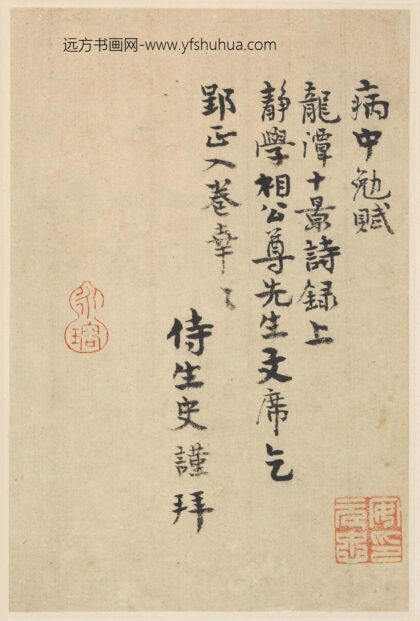 远方书画网-www.yfshuhua.com
病中勉賦
龍潭十景詩録上
靜學相公尊先生文席乞
郢正入卷幸〻
侍生史謹拜